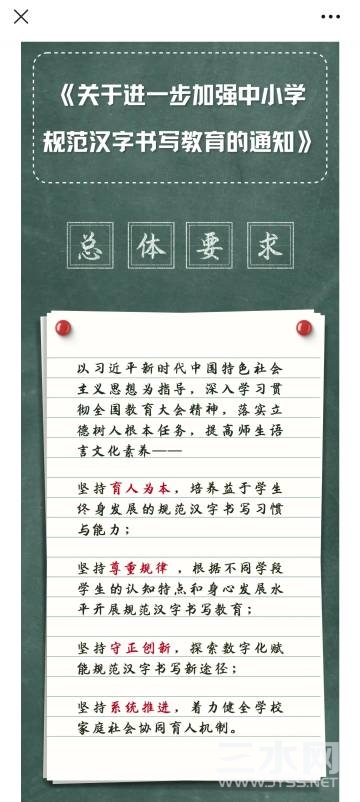 《关于进一步加强中小学
规范汉字书写教育的通知》
总体要求
以习近平新时代中国特色社会
主义思想为指导，深入学习贯
彻全国教育大会精神，落实立
德树人根本任务，提高师生语
言文化素养——
坚持育人为本，培养益于学生
终身发展的规范汉字书写习惯
与能力；
坚持尊重规律，根据不同学段
学生的认知特点和身心发展水
平开展规范汉字书写教育；
坚持守正创新，探索数字化赋
能规范汉字书写新途径；
坚持系统推进，着力健全学校
家庭社会协同育人机制。
三水网
WWW.JYSS.NET